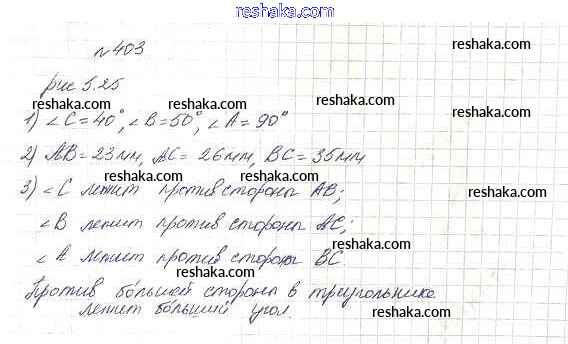 reshaka.com
№403
reshaka.com
рис 5.25
reshaka.com reshaka.com reshaka.com
1) ∠C=40°, ∠B=50°, ∠A=90°
2) AB=23мм, AC=26мм, BC=35мм
reshaka.com reshaka.com reshaka.com
3) ∠C лежит против стороны AB;
∠B лежит против стороны AC;
reshaka.com
∠A лежит против стороны BC.
reshaka.com
Против бо́льшей стороны в треугольнике
лежит бо́льший угол.
reshaka.com
reshaka.com